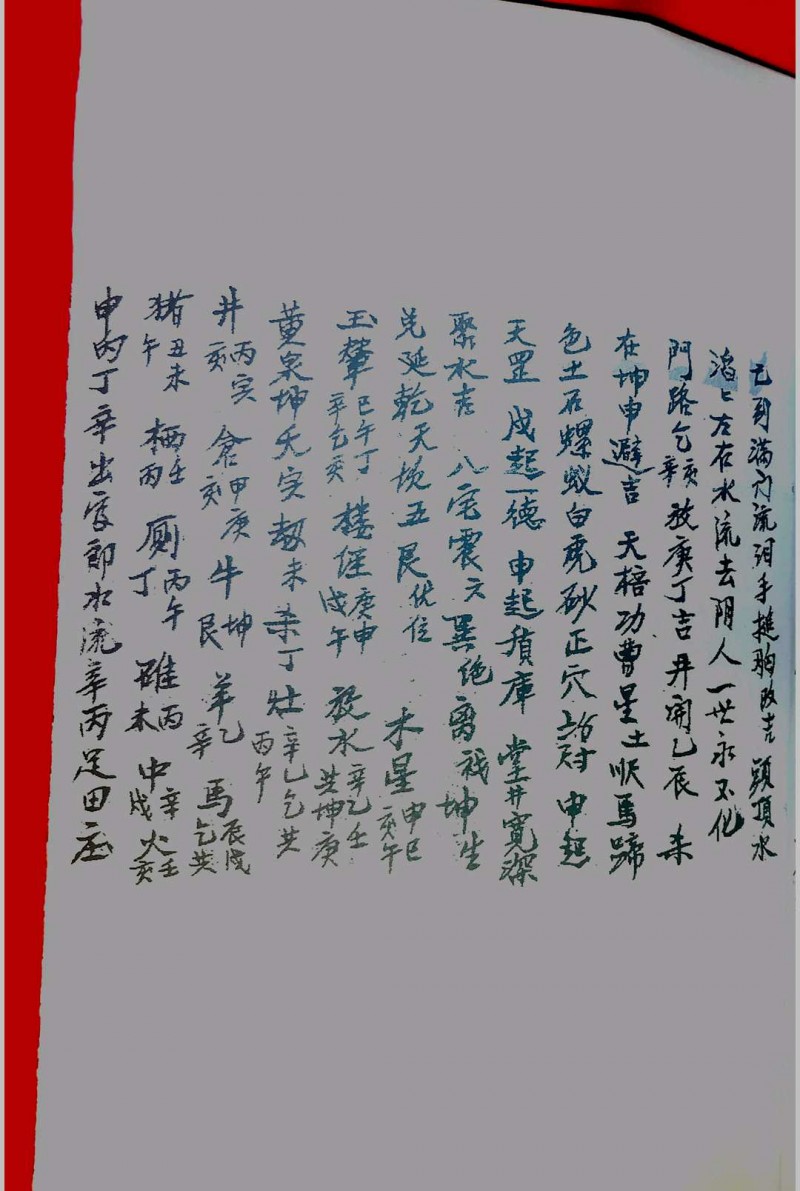 已到滿門流淚手搥胸改吉 頭頂水
滔々左右水流去 陰人一世永不化
門路乞辛亥 放庚丁吉 井開乙辰 杀
在坤申避吉 天棓功曹星土順馬蹄
色土石螺蚁白虎砂正穴 申起
天罡 戌起一德 申起積庫 堂井寬深
聚水吉 八宅震六 巽绝 离祸 坤生
兑延乾天坎五艮伏位 木星申巳亥午
玉輦巳午丁辛乞亥 楼 庚申戌午 放水辛乙壬共坤庚
黄泉坤 劫未 杀丁 灶辛乙乞共丙午
井丙亥 倉甲庚亥 牛坤艮 羊乙辛 馬辰戌乞共
猪丑未午 栖壬丙 厕丙午丁 碓丙未 中辛戌 火壬亥
申丙丁辛出官郎水流辛丙足田庄